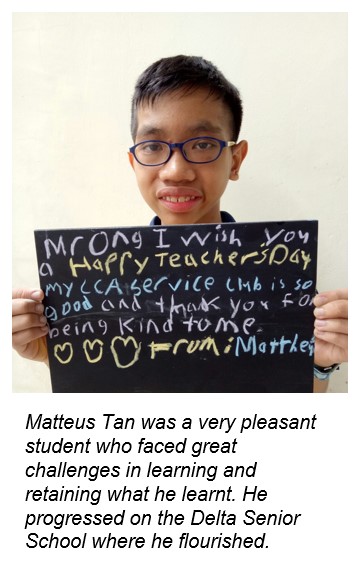 Mr Ong I wish you
a Happy Teacher's Day
My CCA service club is so
good and thank you for
being kind to me
From: Matthe
Matteus Tan was a very pleasant
student who faced great
challenges in learning and
retaining what he learnt. He
progressed on the Delta Senior
School where he flourished.